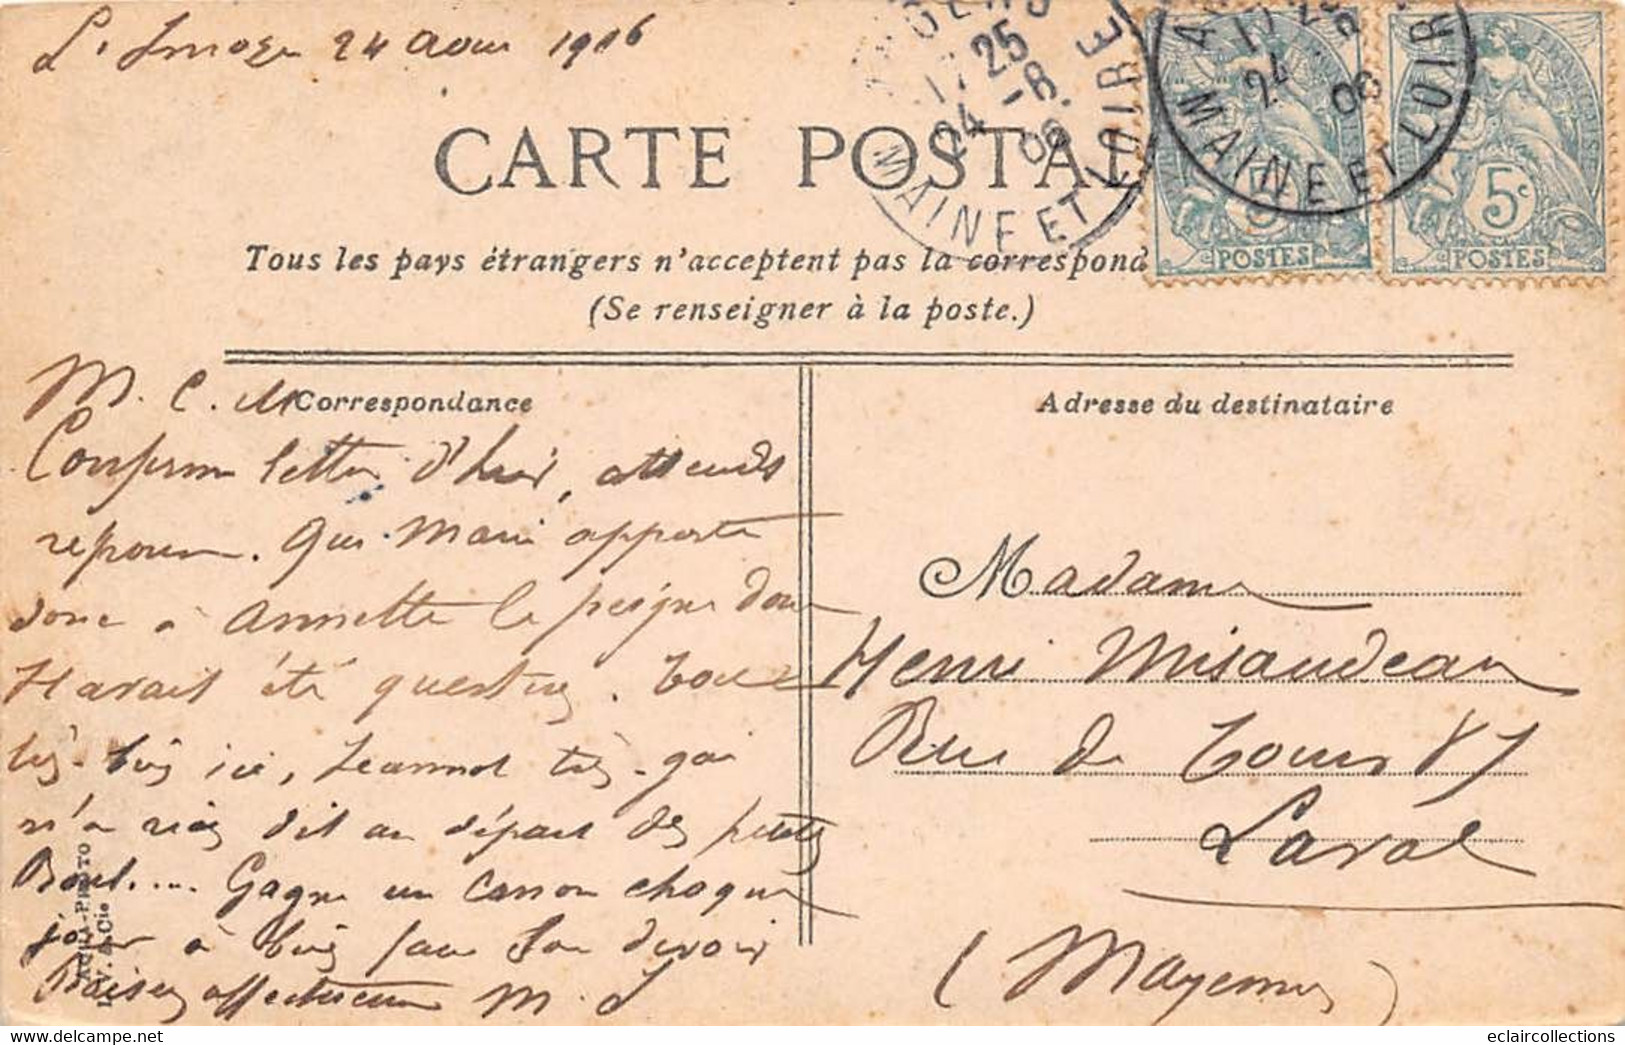 24 Aout 1906
ANGERS
17 25
24 -8
06
MAINE ET LOIRE
MAINE ET LOIRE
24
06
5
POSTES
5c
POSTES
CARTE POSTALE
Tous les pays étrangers n'acceptent pas la correspond
(Se renseigner à la poste.)
Correspondance
M. C. M
Confirme lettre d'hier, attends
reponse. Que Marie apporte
donc à Annette le peigne dont
il avait été question. Tout
très bien ici, Jeannot très gai
n'a rien dit au départ des petits
Boul.... Gagne un canon chaque
jour à bien faire son devoir
Baisers affectueux M. J
AQUA-PHOTO
L. V. & Cie
Adresse du destinataire
Madame
Henri Misaudeau
Rue de Tours 87
Laval
(Mayenne)
www.delcampe.net
eclaircollections